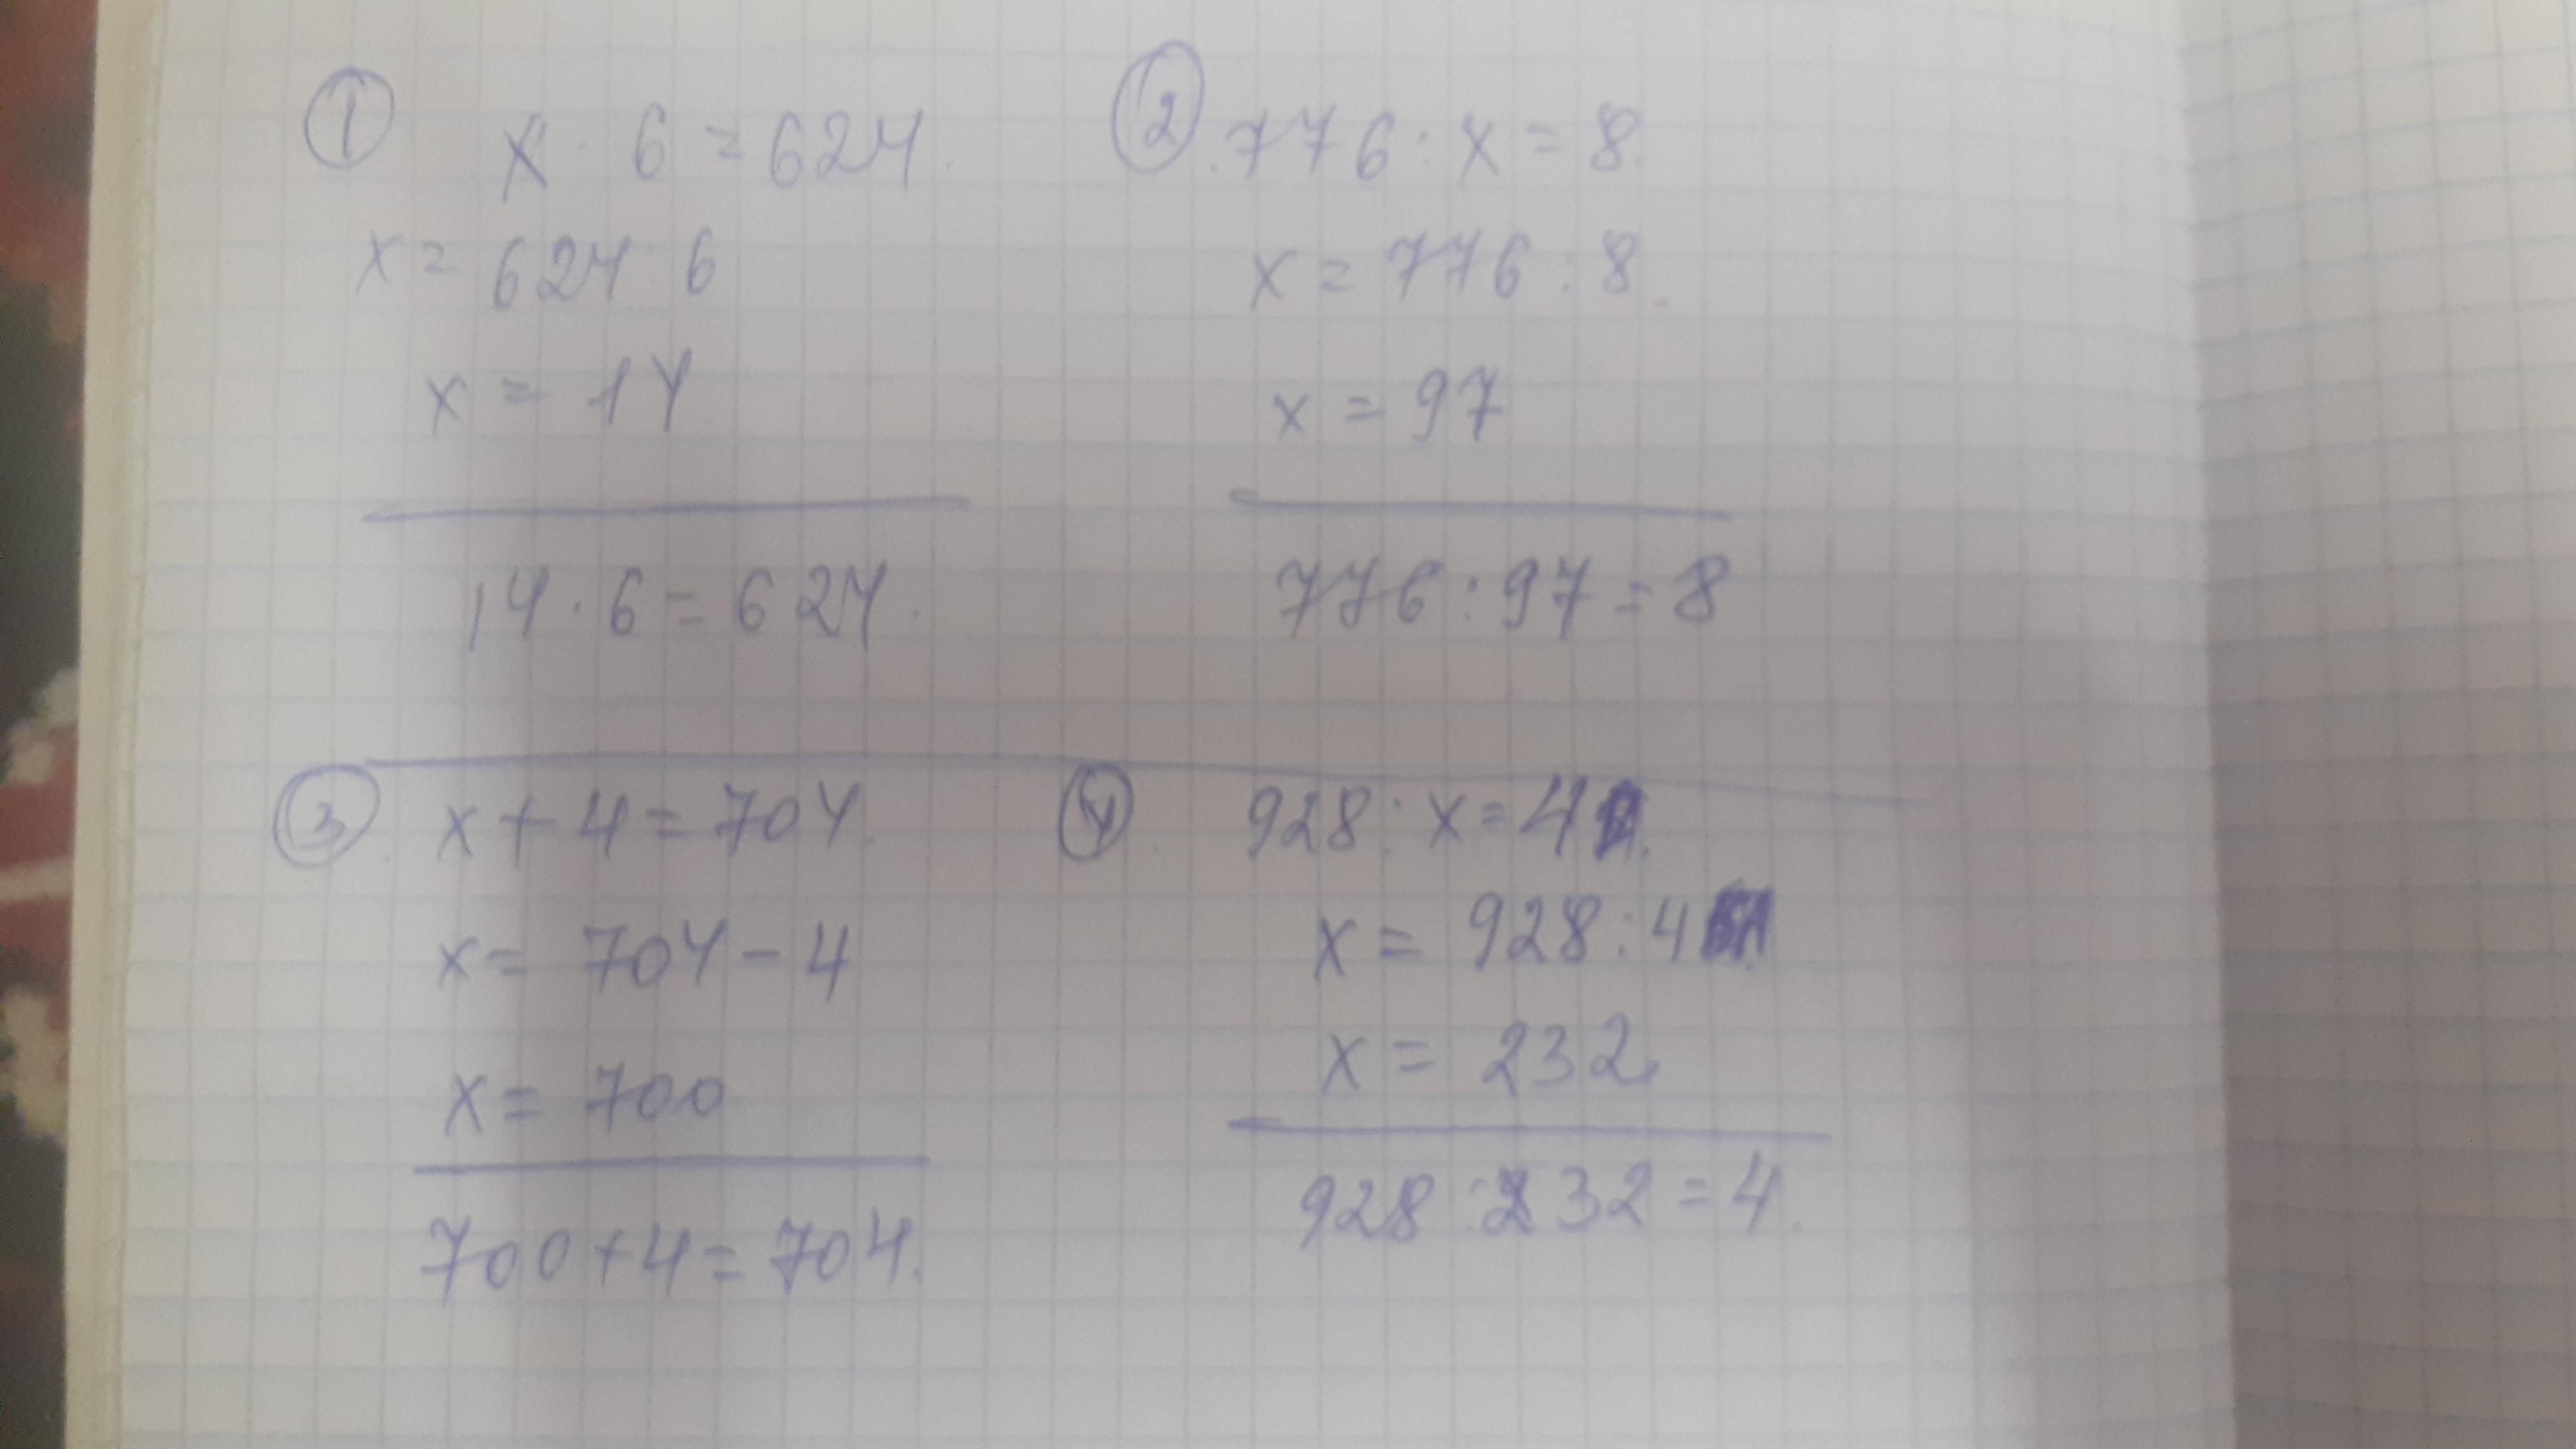 ① x · 6 = 624.
x = 624 : 6
x = 14
14 · 6 = 624.
② 776 : x = 8.
x = 776 : 8.
x = 97
776 : 97 = 8
③ x + 4 = 704.
x = 704 - 4
x = 700
700 + 4 = 704.
④ 928 : x = 4
x = 928 : 4
x = 232
928 : 232 = 4.